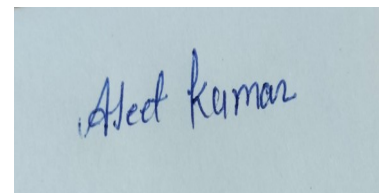 Ajeet kumar